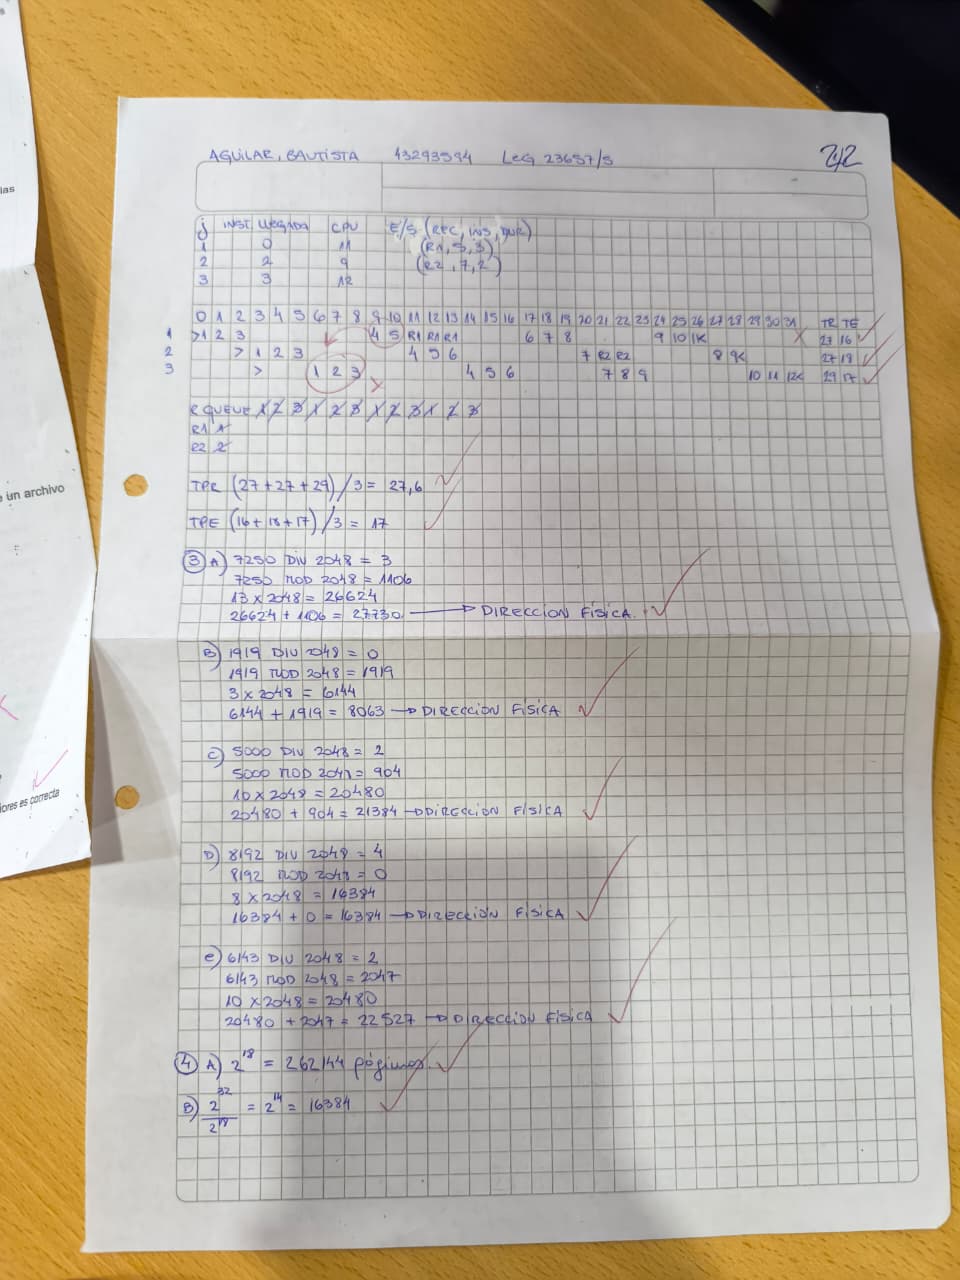 AGUILAR, BAUTISTA 43293594 LEG 23657/5 2/2
J INST. LLEGADA CPU E/S (REC, INS, DUR)
1 0 11 (R1, 5, 3)
2 2 9 (R2, 7, 2)
3 3 12
0 1 2 3 4 5 6 7 8 9 10 11 12 13 14 15 16 17 18 19 20 21 22 23 24 25 26 27 28 29 30 31 TR TE
1 >1 2 3 4 5 R1 R1 R1 6 7 8 9 10 1K 27 16
2 > 1 2 3 4 5 6 7 R2 R2 8 9K 27 18
3 > 1 2 3 4 5 6 7 8 9 10 11 12K 29 17
R QUEUE 1 2 3 1 2 3 1 2 3 1 2 3
R1 1
R2 2
TPR (27+27+29)/3 = 27,6
TPE (16+18+17)/3 = 17
3 A) 7250 DIV 2048 = 3
7250 MOD 2048 = 1106
13 x 2048 = 26624
26624 + 1106 = 27730 → DIRECCION FÍSICA.
B) 1919 DIV 2048 = 0
1919 MOD 2048 = 1919
3 x 2048 = 6144
6144 + 1919 = 8063 → DIRECCION FISICA
C) 5000 DIV 2048 = 2
5000 MOD 2048 = 904
10 x 2048 = 20480
20480 + 904 = 21384 → DIRECCION FÍSICA
D) 8192 DIV 2048 = 4
8192 MOD 2048 = 0
8 x 2048 = 16384
16384 + 0 = 16384 → DIRECCIÓN FÍSICA
e) 6143 DIV 2048 = 2
6143 MOD 2048 = 2047
10 x 2048 = 20480
20480 + 2047 = 22527 → DIRECCION FÍSICA
4 A) 2^18 = 262144 páginas.
B) 2^32 / 2^18 = 2^14 = 16384
e un archivo
iores es correcta